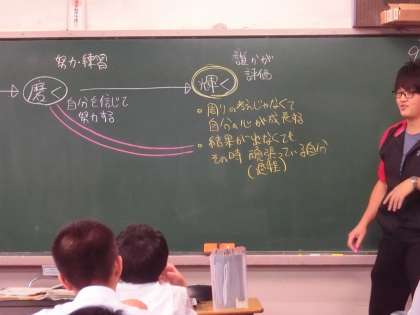 努力・練習
磨く
自分を信じて
努力する
誰かが
評価
輝く
・周りの考えじゃなくて
自分の心が成長する
・結果が出なくても
その時 頑張っている自分
(過程)
9